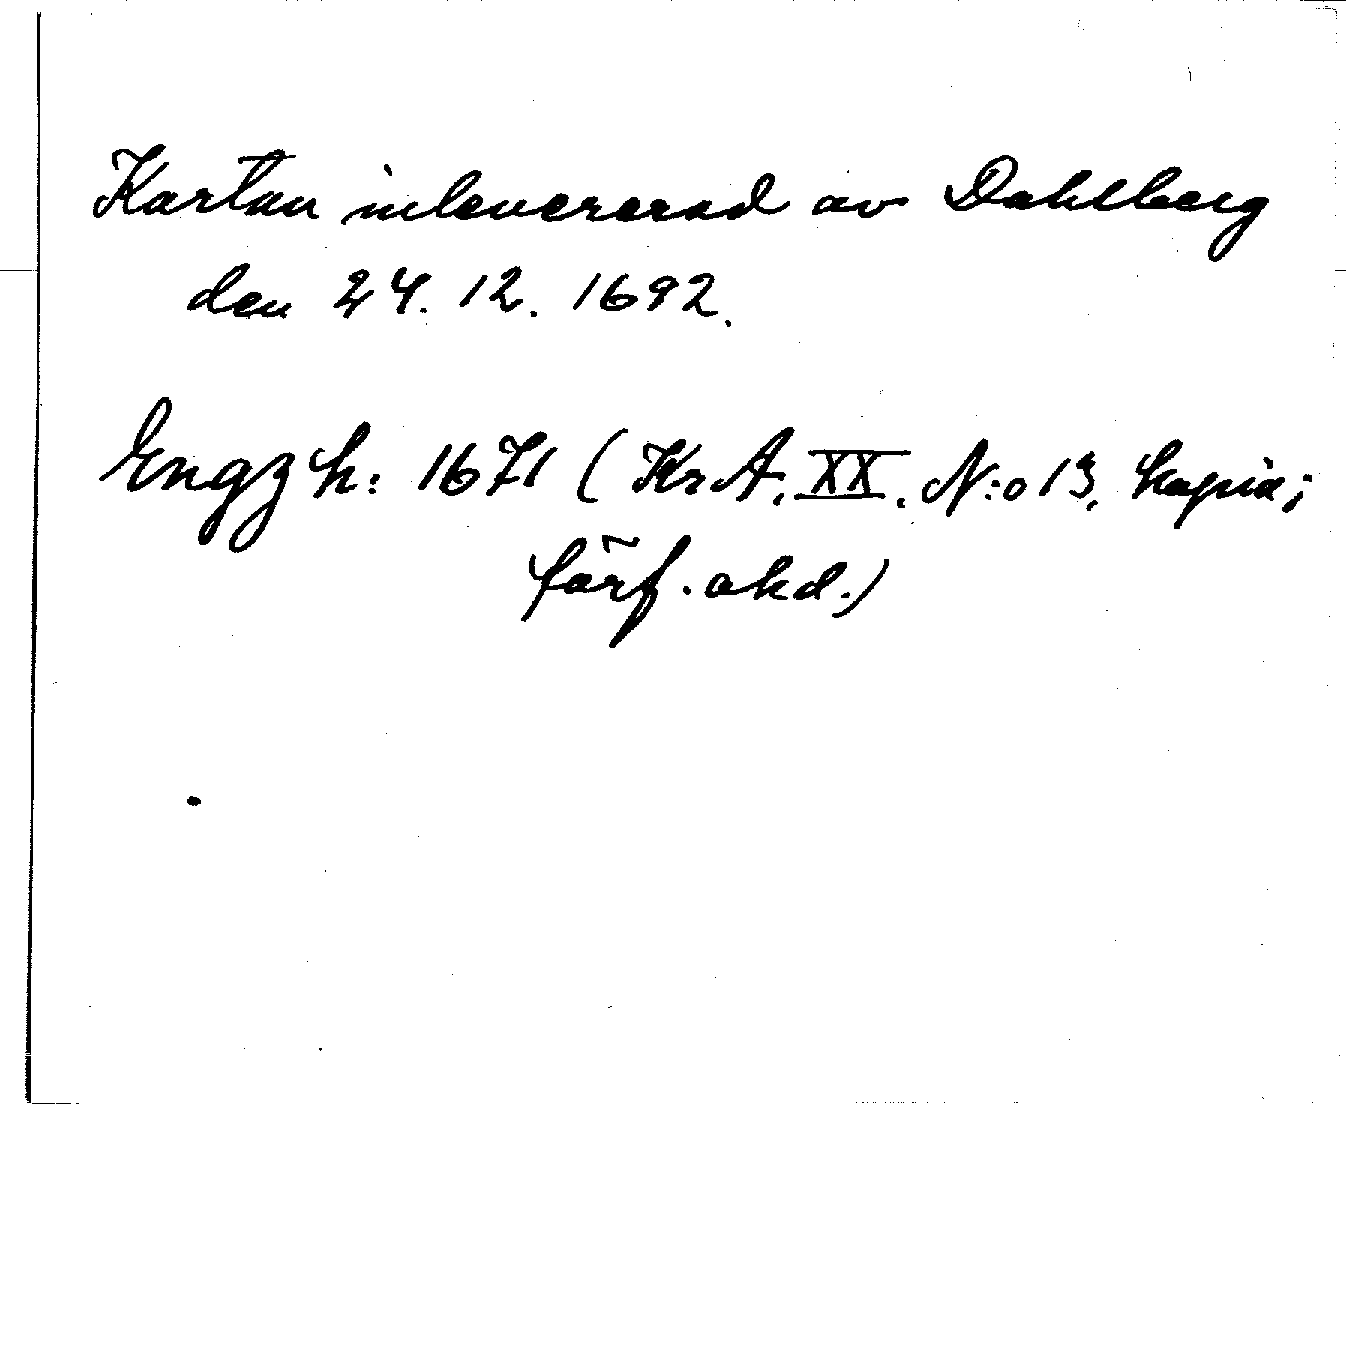 Kartan inlevererad av Dahlberg
den 24. 12. 1692.
Engzh: 1671 (KrA. XX. N:o 13, kopia;
förf. okd.)